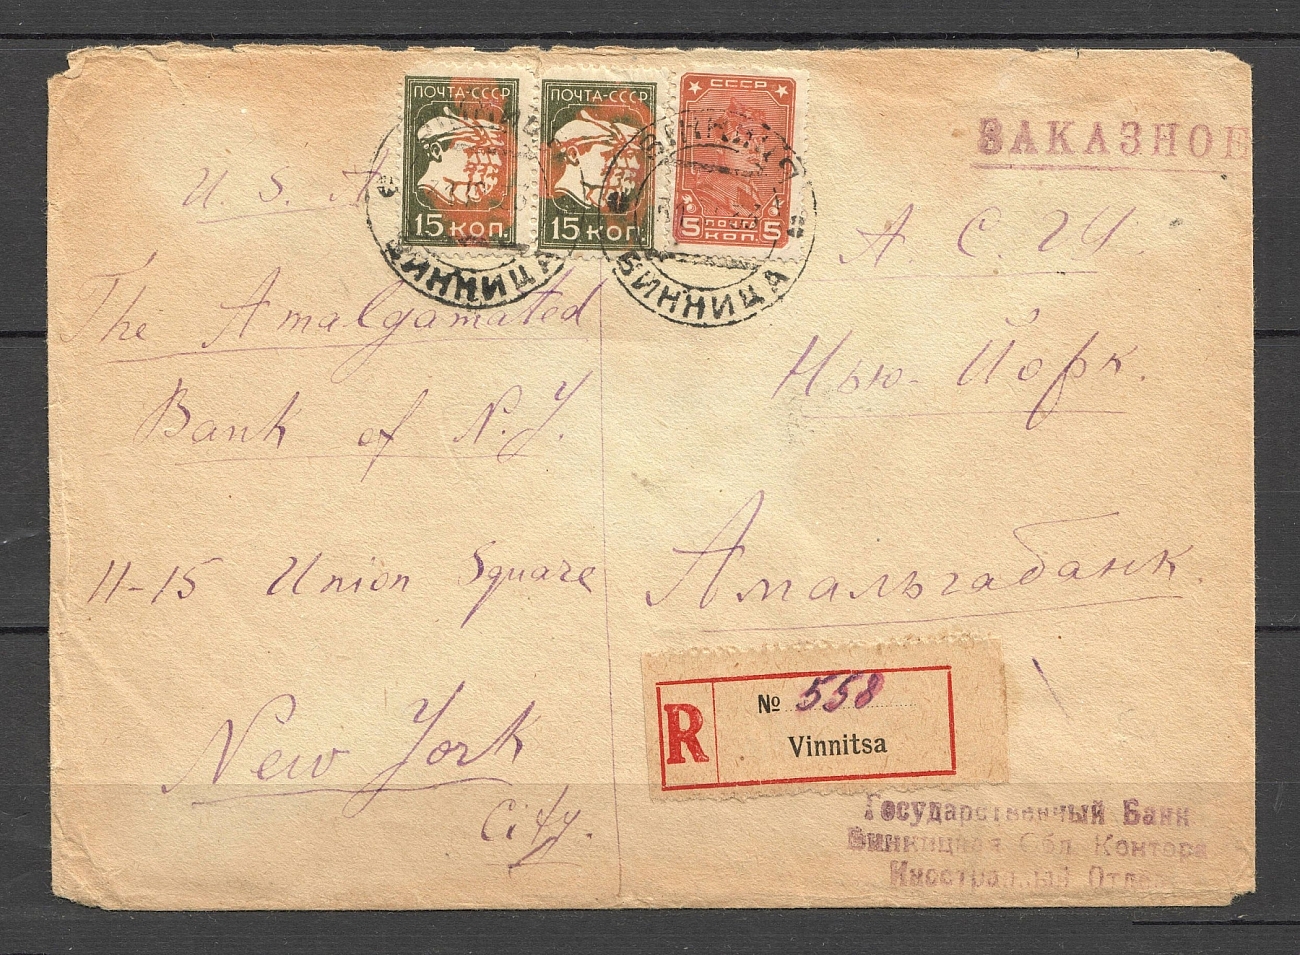 ПОЧТА-СССР
15 КОП.
ПОЧТА-СССР
15 КОП.
СССР
5 ПОЧТА 5
КОП.
ВИННИЦА
ВИННИЦА
ЗАКАЗНОЕ
U. S. A
The Amalgamated
Bank of N.Y.
11-15 Union Square
New York
City.
А. С. Ш
Нью-Йорк.
Амальгабанк.
R
№ 558
Vinnitsa
Государственный Банк
Винницкая Обл. Контора
Иностранный Отдел